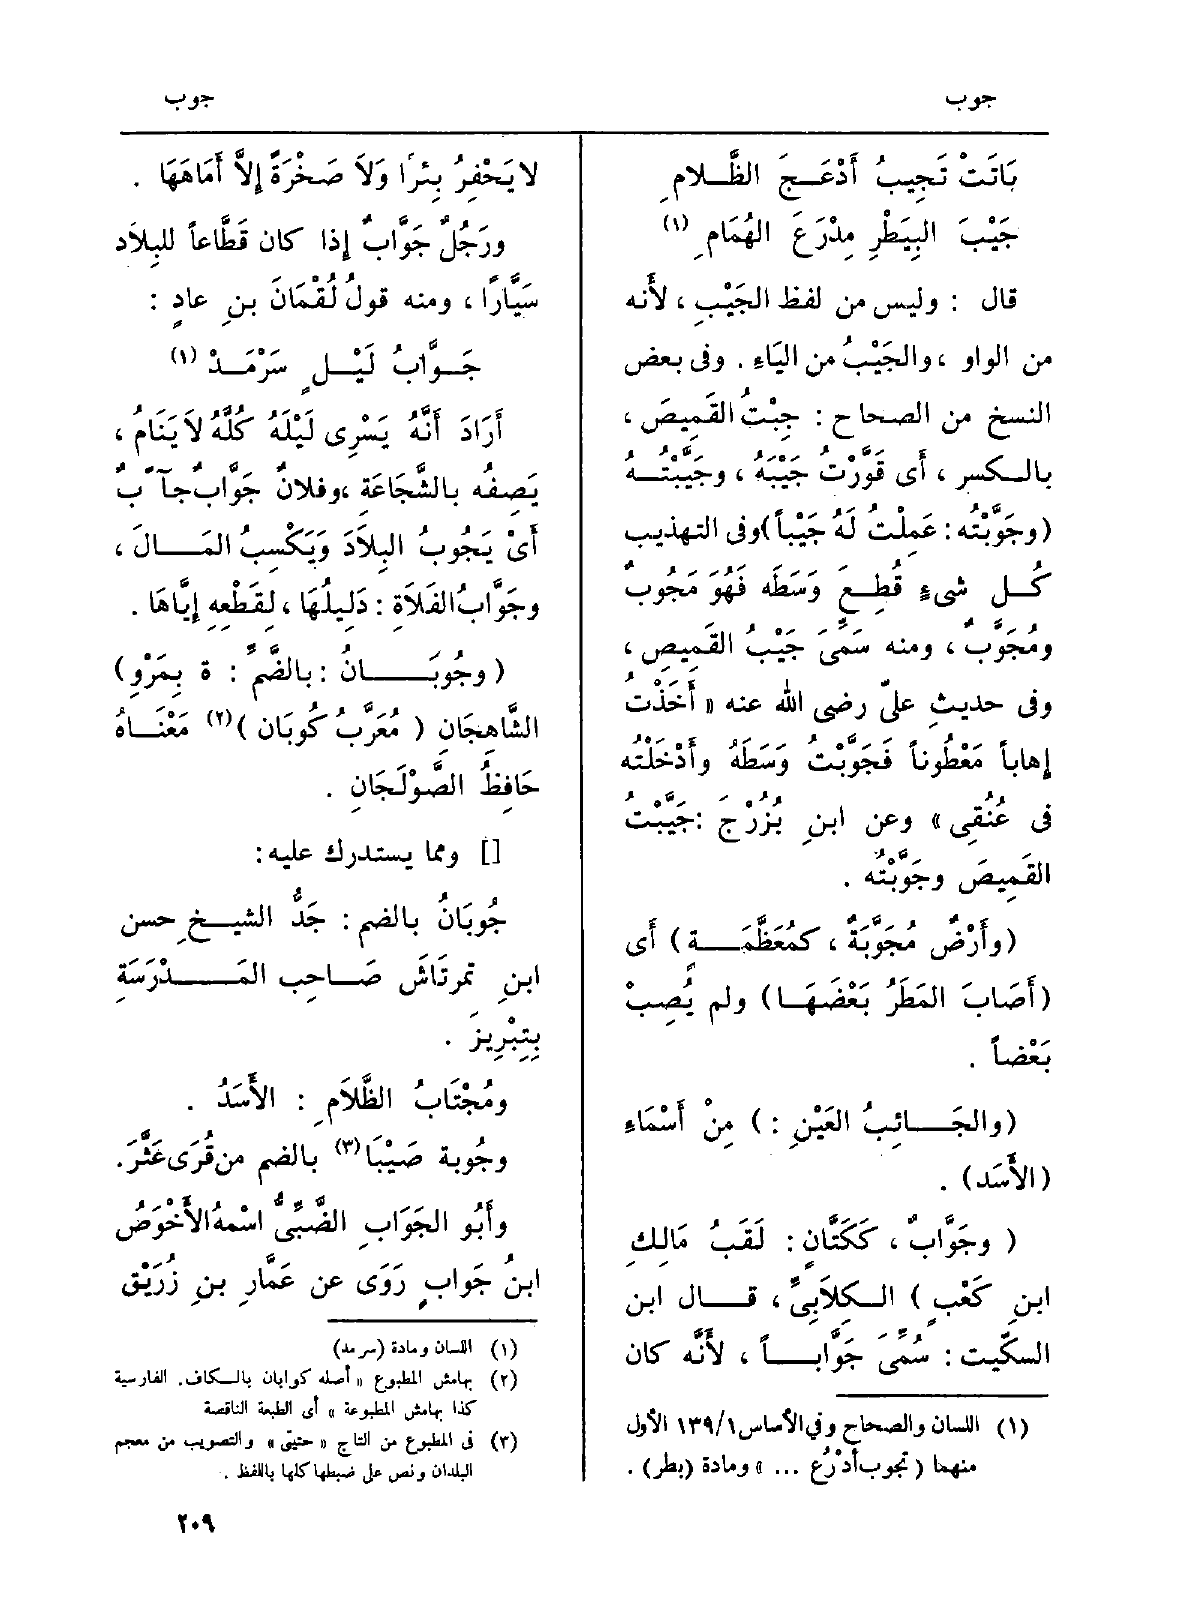 جوب
جوب
بَاتَتْ تَجِيبُ أَدْعَجَ الظَّـلَامِ
جَيْبَ البِيَطْرِ مِدْرَعَ الهُمَامِ (١)
قال : وليس من لفظ الجَيْبِ ، لأَنه
من الواو ، والجَيْبُ من اليَاءِ . وفى بعض
النسخ من الصحاح : جِبْتُ القَمِيصَ ،
بالـكسر ، أَى قَوَّرْتُ جَيْبَهُ ، وجَيَّبْتُـهُ
(وجَوَّبْتُه : عَمِلْتُ لَهُ جَيْباً) وفى التهذيب
كُـل شىءٍ قُطِـعَ وَسَطُه فَهُوَ مَجُوبٌ
ومُجَوَّبٌ ، ومنه سمِّىَ جَيْبُ القَمِيصِ ،
وفى حديثِ علىّ رضى الله عنه « أَخَذْتُ
إِهاباً مَعْطُوناً فَجَوَّبْتُ وَسَطَهُ وأَدْخَلْتُه
فى عُنُقِى » وعن ابنِ بُزُرْجَ : جَيَّبْتُ
القَمِيصَ وجَوَّبْتُه .
(وأَرْضٌ مُجَوَّبَةٌ ، كمُعَظَّمَــةٍ ) أَى
(أَصَابَ المَطَرُ بَعْضَهَـا ) ولم يُصِبْ
بَعْضاً .
(والجَــائِبُ العَيْنِ : ) مِنْ أَسْمَاءِ
(الأَسَد) .
( وجَوَّابٌ ، ككَتَّانٍ : لَقَبُ مَالِكِ
ابنِ كَعْبٍ ) الـكِلاَبِىِّ ، قـال ابن
السكِّيت : سُمِّىَ جَوَّابـاً ، لأَنَّه كان
(١) اللسان والصحاح وفي الأساس ١٣٩/١ الأول
منهما ( تجوب أَدْرُع ... » ومادة (بطر) .
لا يَحْفِرُ بِئْرًا وَلاَ صَخْرَةً إِلاَّ أَمَاهَهَا .
ورَجُلٌ جَوَّابٌ إِذا كان قَطَّاعاً للبِلاَد
سَيَّارًا ، ومنه قولُ لُقْمَانَ بنِ عادٍ :
جَـوَّابُ لَيْـلٍ سَرْمَـدْ (١)
أَرَادَ أَنَّهُ يَسْرِى لَيْلَهُ كُلَّهُ لاَ يَنَامُ ،
يَصِفُه بالشَّجَاعَةِ ، وفلانٌ جَوَّابٌ جـآبٌ
أَىْ يَجُوبُ البِلاَدَ وَيَكْسِبُ المَـالَ ،
وجَوَّابُ الفَلاَةِ : دَلِيلُهَا ، لِقَطْعِهِ إِيَّاهَا .
( وجُوبَـــانُ : بالضَّمِّ : ة بِمَرْوِ )
الشَّاهِجَانِ ( مُعَرَّبُ كُوبَان ) (٢) مَعْنَـاهُ
حَافِظُ الصَّوْلَجَانِ .
[] ومما يستدرك عليه :
جُوبَانُ بالضم : جَدُّ الشيـخِ حسن
ابنِ تمرتَاش صَـاحِبِ المَــدْرَسَةِ
بِتِبْرِيزَ .
ومُجْتَابُ الظَّلاَمِ : الأَسَدُ .
وجُوبة صَيْبَا (٣) بالضم من قُرَى عَثَّرَ .
وأَبُو الجَوَابِ الضَّبِّىُّ اسْمه الأَحْوَصُ
ابنُ جَوابٍ رَوَى عن عَمَّارِ بنِ زُرَيْقٍ
(١) اللسان ومادة (سرمد)
(٢) بهامش المطبوع « أصله كوابان بالـكاف . الفارسية
كذا بهامش المطبوعة » أى الطبعة الناقصة
(٣) فى المطبوع من التاج « حتيى » والتصويب من معجم
البلدان ونص على ضبطها كلها باللفظ .
٢٠٩